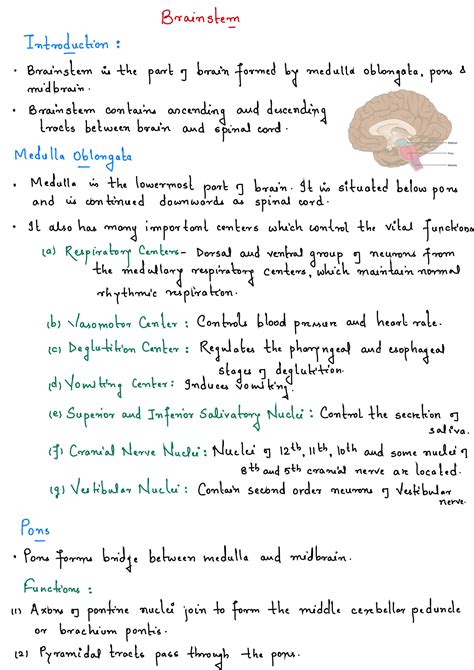 Brainstem
Introduction :
• Brainstem is the part of brain formed by medulla oblongata, pons &
midbrain.
• Brainstem contains ascending and descending
tracts between brain and spinal cord.
Medulla Oblongata
• Medulla is the lowermost part of brain. It is situated below pons
and is continued downwards as spinal cord.
• It also has many important centers which control the vital functions
(a) Respiratory Centers- Dorsal and ventral group of neurons from
the medullary respiratory centers, which maintain normal
rhythmic respiration.
(b) Vasomotor Center : Controls blood pressure and heart rate.
(c) Deglutition Center : Regulates the pharyngeal and esophageal
stages of deglutition.
(d) Vomiting Center: Induces vomiting.
(e) Superior and Inferior Salivatory Nuclei : Control the secretion of
saliva.
(f) Cranial Nerve Nuclei : Nuclei of 12th, 11th, 10th and some nuclei of
8th and 5th cranial nerve are located.
(g) Vestibular Nuclei : Contain second order neurons of Vestibular
nerve.
Pons
• Pons forms bridge between medulla and midbrain.
Functions :
(1) Axons of pontine nuclei join to form the middle cerebellar peduncle
or brachium pontis.
(2) Pyramidal tracts pass through the pons.